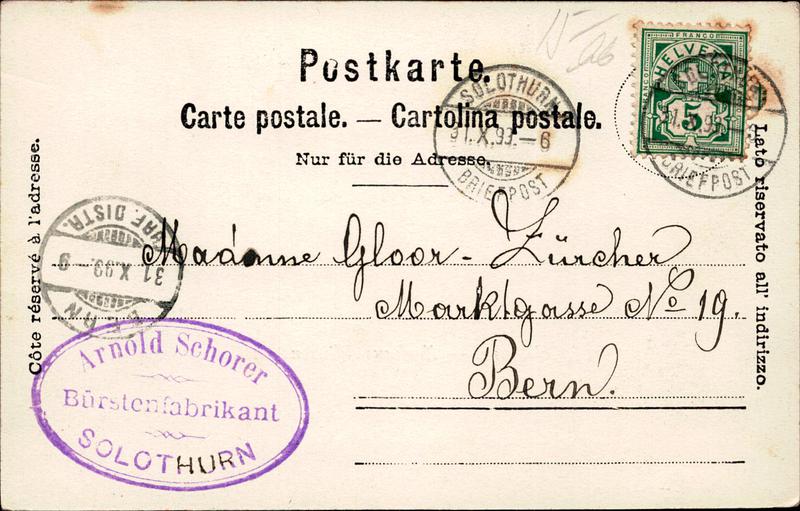 Postkarte.
Carte postale. — Cartolina postale.
Nur für die Adresse.
Côte réservé à l'adresse.
Lato riservato all' indirizzo.
FRANCO
HELVETIA
5
SOLOTHURN
31.X.93.–6
BRIEFPOST
31.X.93.–
BRIEFPOST
BERN
31.X.93.–9
Madame Gloor-Zürcher
Marktgasse No 19.
Bern.
Arnold Schorer
Bürstenfabrikant
SOLOTHURN